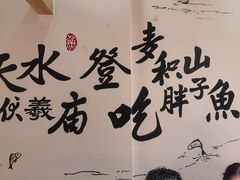 天水 登麦积山
伏羲庙 吃胖子魚